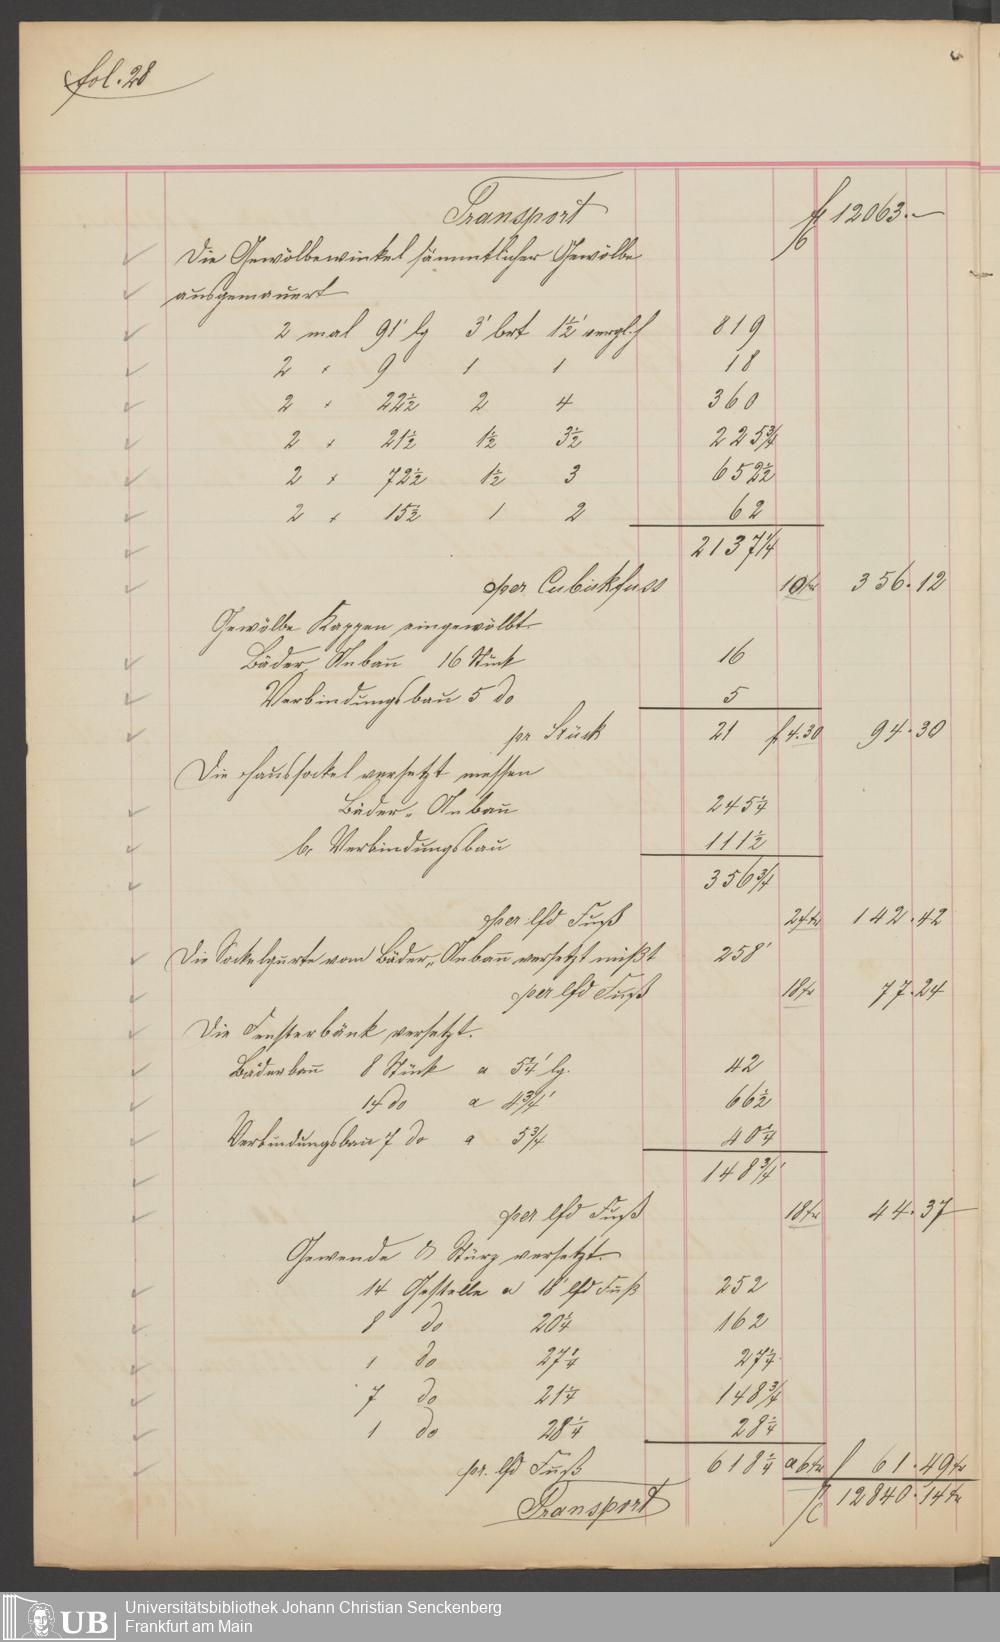 fol. 28
Transport f 12063.—
Die Gewölbewinkel sämmtlicher Gewölbe
ausgemauert
2 mal 91' lg 3' brt 1½' vergl. h 819
2 " 9 1 1 18
2 " 22½ 2 4 360
2 " 21½ 1½ 3½ 225¾
2 " 72½ 1½ 3 652½
2 " 15½ 1 2 62
2137¼
per Cubickfuss 10 kr 356.12
Gewölbe Kappen eingewölbt
Bäder Anbau 16 Stück 16
Verbindungsbau 5 do 5
pr Stück 21 f 4.30 94.30
Die Haussockel versetzt messen
Bäder-Anbau 245¼
b. Verbindungsbau 111½
356¾
per lfd Fuß 24 kr 142.42
Die Sockelgurte vom Bäder-Anbau versetzt mißt 258'
per lfd Fuß 18 kr 77.24
Die Fensterbänk versetzt.
Bäderbau 8 Stück a 5¼' lg. 42
14 do a 4¾' 66½
Verbindungsbau 7 do a 5¾ 40¼
148¾'
per lfd Fuß 18 kr 44.37
Gewende & Stürz versetzt
14 Gestelle a 18' lfd Fuß 252
8 do 20¼ 162
1 do 27¼ 27¼
7 do 21¼ 148¾
1 do 28¼ 28¼
pr. lfd Fuß 618¼ a 6 kr f 61.49 kr
Transport f 12840.14 kr
UB
Universitätsbibliothek Johann Christian Senckenberg
Frankfurt am Main